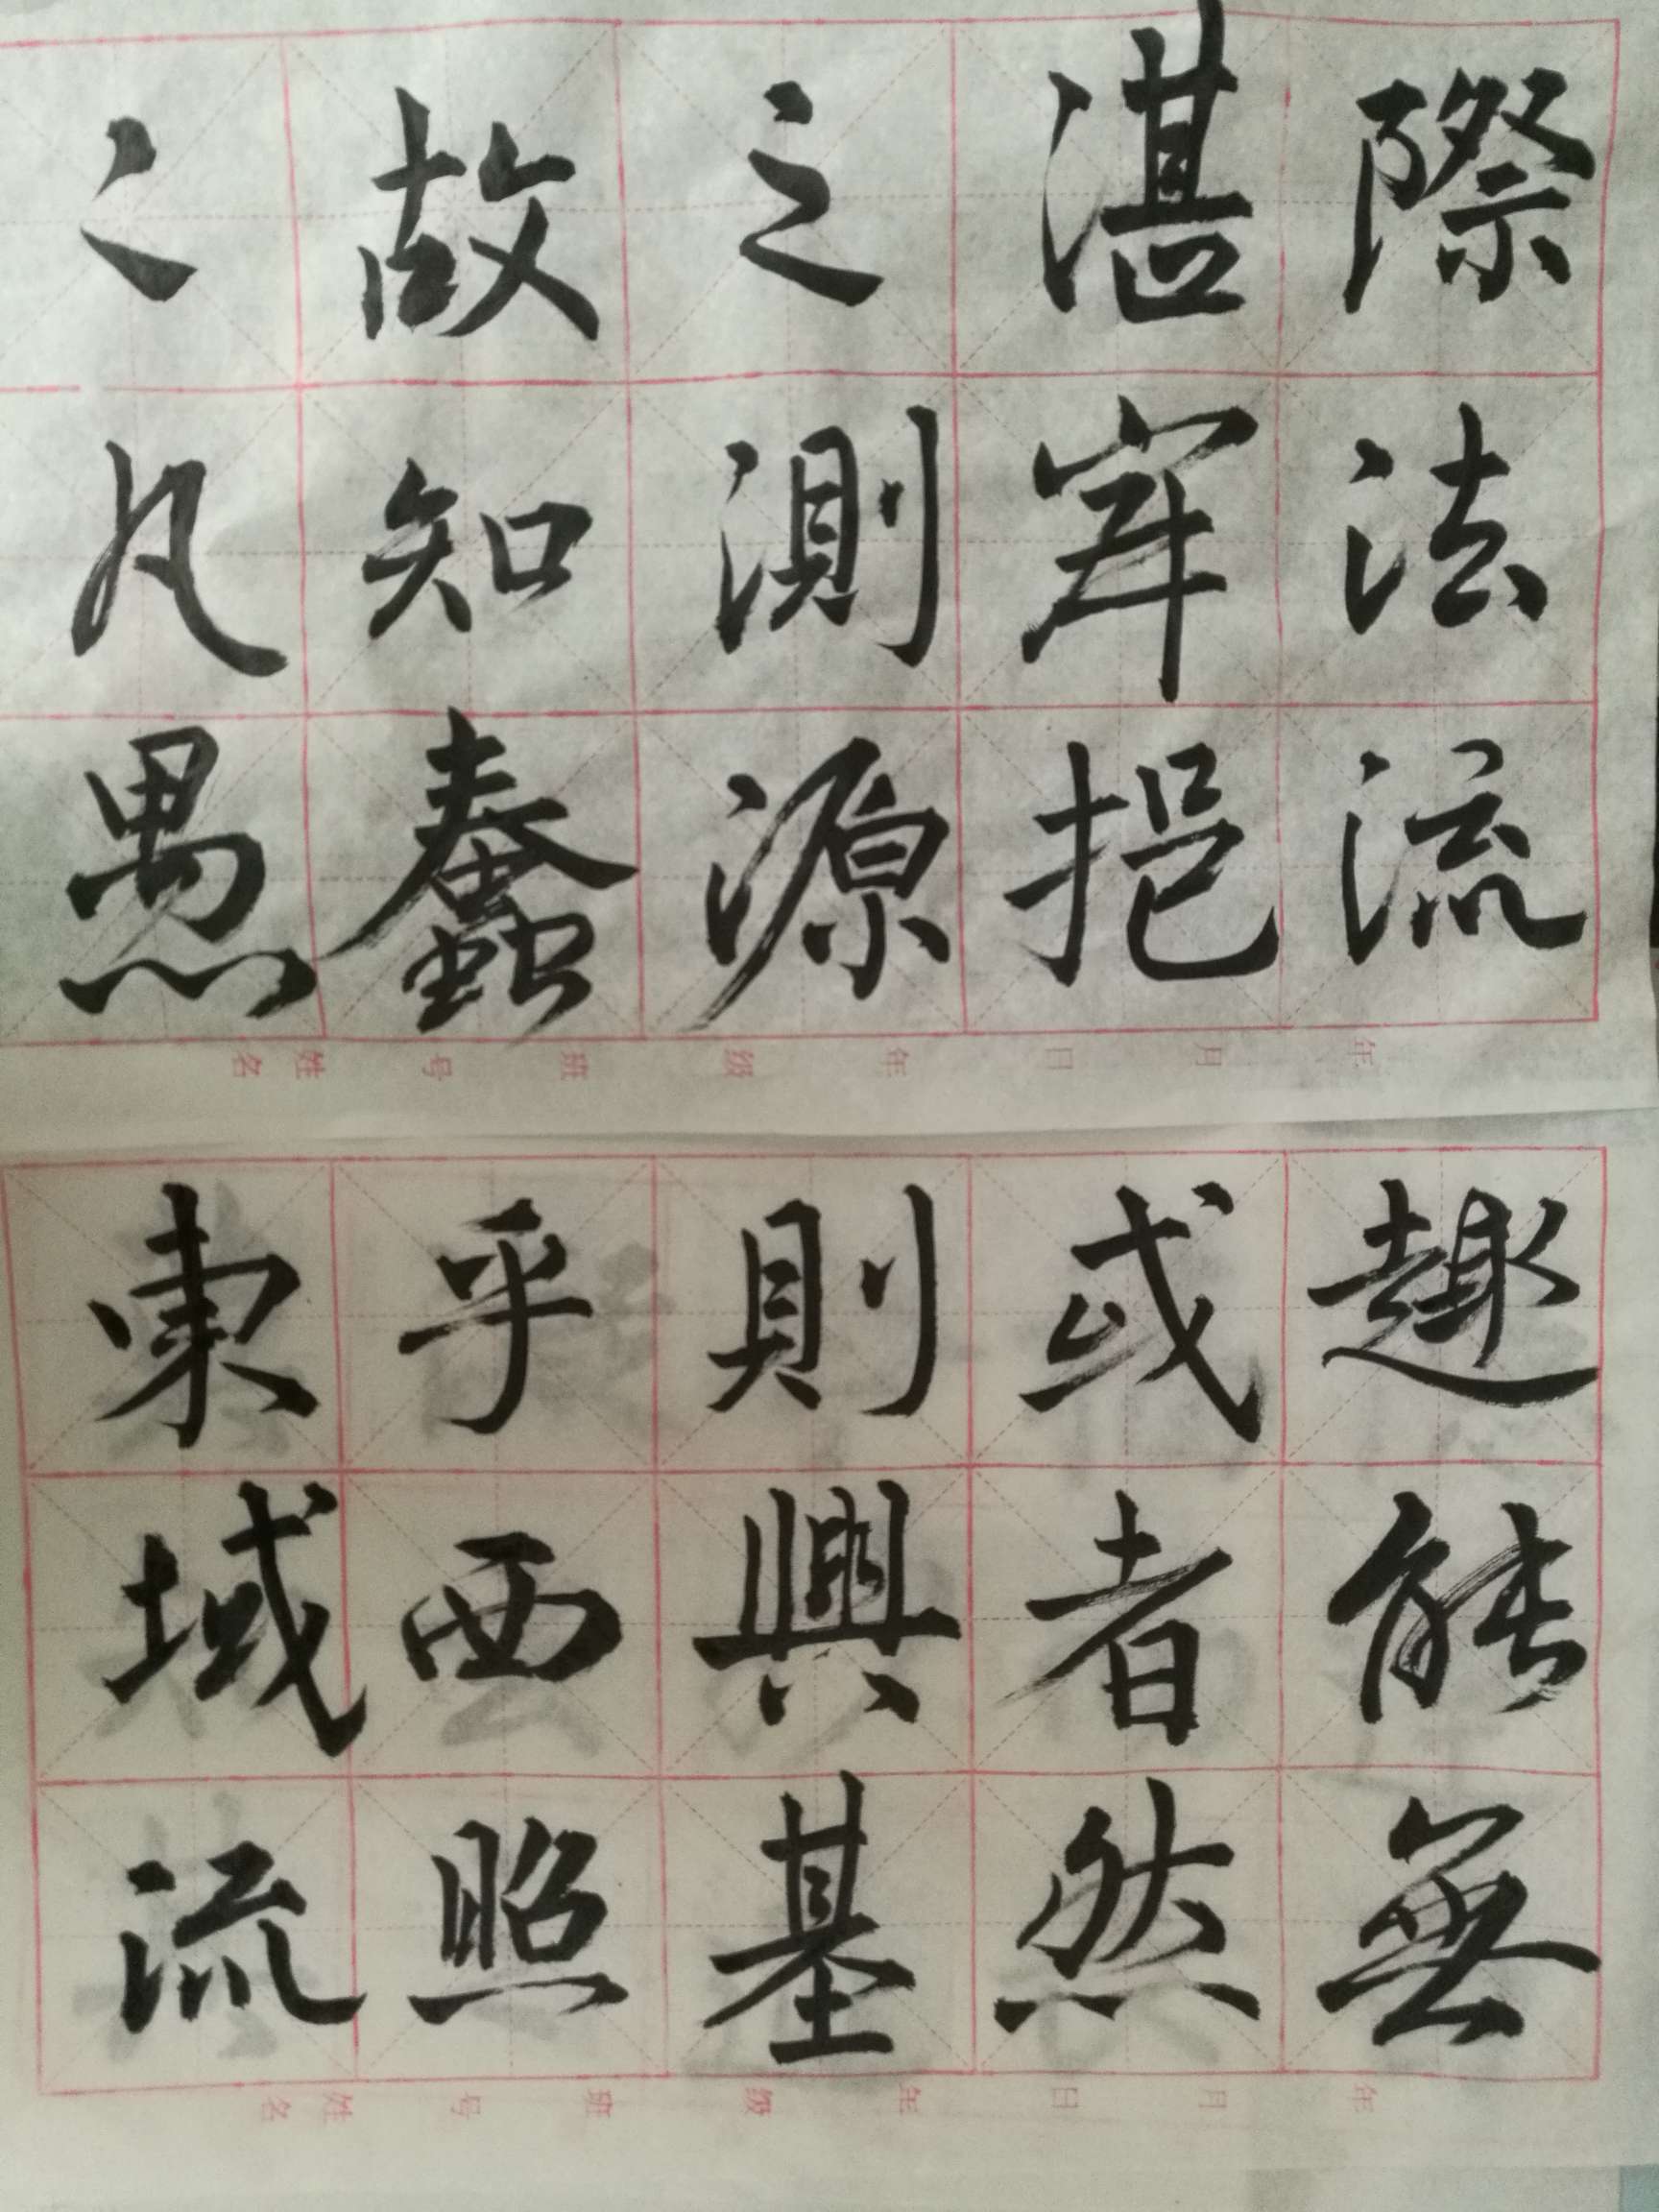 際法流
湛寂挹
之測源
故知蠢
〻凡愚
年 月 日 年 级 班 号 姓名
趣能無
或者然
則興基
乎西照
東域流
年 月 日 年 级 班 号 姓名